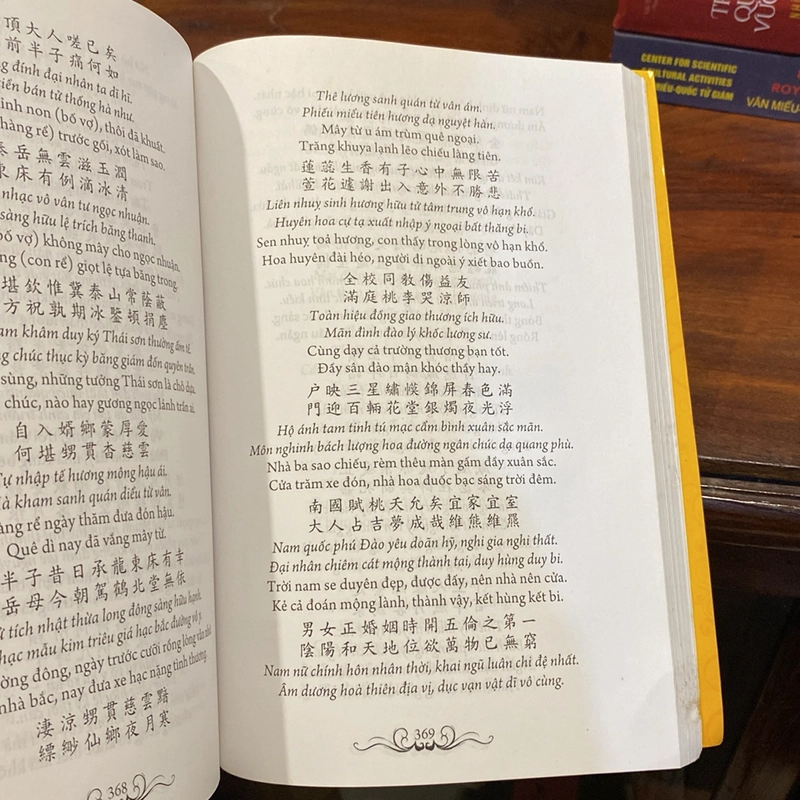 頂大人嗟已矣
前半子痛何如
đính đại nhân ta dĩ hĩ.
tiền bán tử thống hà như.
đỉnh non (bố vợ), thôi đã khuất.
hàng rể) trước gối, xót làm sao.
泰岳無雲滋玉潤
東床有例滴冰清
nhạc vô vân tư ngọc nhuận.
sàng hữu lệ trích băng thanh.
bố vợ) không mây cho ngọc nhuận.
(con rể) giọt lệ tựa băng trong.
堪欽惟冀泰山常蔭蔽
方祝孰期冰鑒頓捐塵
khâm duy ký Thái sơn thường ấm tế.
chúc thục kỳ băng giám đốn quyên trần.
sùng, những tưởng Thái sơn là chỗ dựa.
chúc, nào hay gương ngọc lánh trần ai.
自入婿鄉蒙厚愛
何堪甥貫杳慈雲
Tự nhập tế hương mông hậu ái.
Hà kham sanh quán diểu từ vân.
Làng rể ngày thăm đưa đón hậu.
Quê dì nay đã vắng mây từ.
半子昔日承龍東床有幸
岳母今朝駕鶴北堂無依
tử tích nhật thừa long đông sàng hữu hạnh.
nhạc mẫu kim triêu giá hạc bắc đường vô y.
đường đông, ngày trước cưỡi rồng lòng vẫn nhớ
nhà bắc, nay đưa xe hạc nặng tình thương.
淒涼甥貫慈雲黯
縹緲仙鄉夜月寒
368
Thê lương sanh quán từ vân ám.
Phiếu miểu tiên hương dạ nguyệt hàn.
Mây từ u ám trùm quê ngoại.
Trăng khuya lạnh lẽo chiếu làng tiên.
蓮蕊生香有子心中無限苦
萱花遽謝出入意外不勝悲
Liên nhuỵ sinh hương hữu tử tâm trung vô hạn khổ.
Huyên hoa cự tạ xuất nhập ý ngoại bất thăng bi.
Sen nhuỵ toả hương, con thấy trong lòng vô hạn khổ.
Hoa huyên dài héo, người di ngoài ý xiết bao buồn.
全校同教傷益友
滿庭桃李哭涼師
Toàn hiệu đồng giao thương ích hữu.
Mãn đình đào lý khốc lương sư.
Cùng dạy cả trường thương bạn tốt.
Đầy sân đào mận khóc thầy hay.
户映三星繡幙錦屏春色滿
門迎百輛花堂銀燭夜光浮
Hộ ánh tam tinh tú mạc cẩm bình xuân sắc mãn.
Môn nghinh bách lượng hoa đường ngân chúc dạ quang phù.
Nhà ba sao chiếu, rèm thêu màn gấm đầy xuân sắc.
Cửa trăm xe đón, nhà hoa đuốc bạc sáng trời đêm.
南國賦桃夭允矣宜家宜室
大人占吉夢成哉維熊維羆
Nam quốc phú Đào yêu doãn hỹ, nghi gia nghi thất.
Đại nhân chiêm cát mộng thành tai, duy hùng duy bi.
Trời nam se duyên đẹp, được đấy, nên nhà nên cửa.
Kẻ cả đoán mộng lành, thành vậy, kết hùng kết bi.
男女正婚姻時開五倫之第一
陰陽和天地位欲萬物已無窮
Nam nữ chính hôn nhân thời, khai ngũ luân chi đệ nhất.
Âm dương hoà thiên địa vị, dục vạn vật dĩ vô cùng.
369
CENTER FOR SCIENTIFIC
CULTURAL ACTIVITIES
MIẾU-QUỐC TỬ GIÁM
ROY
VĂN MIẾU-